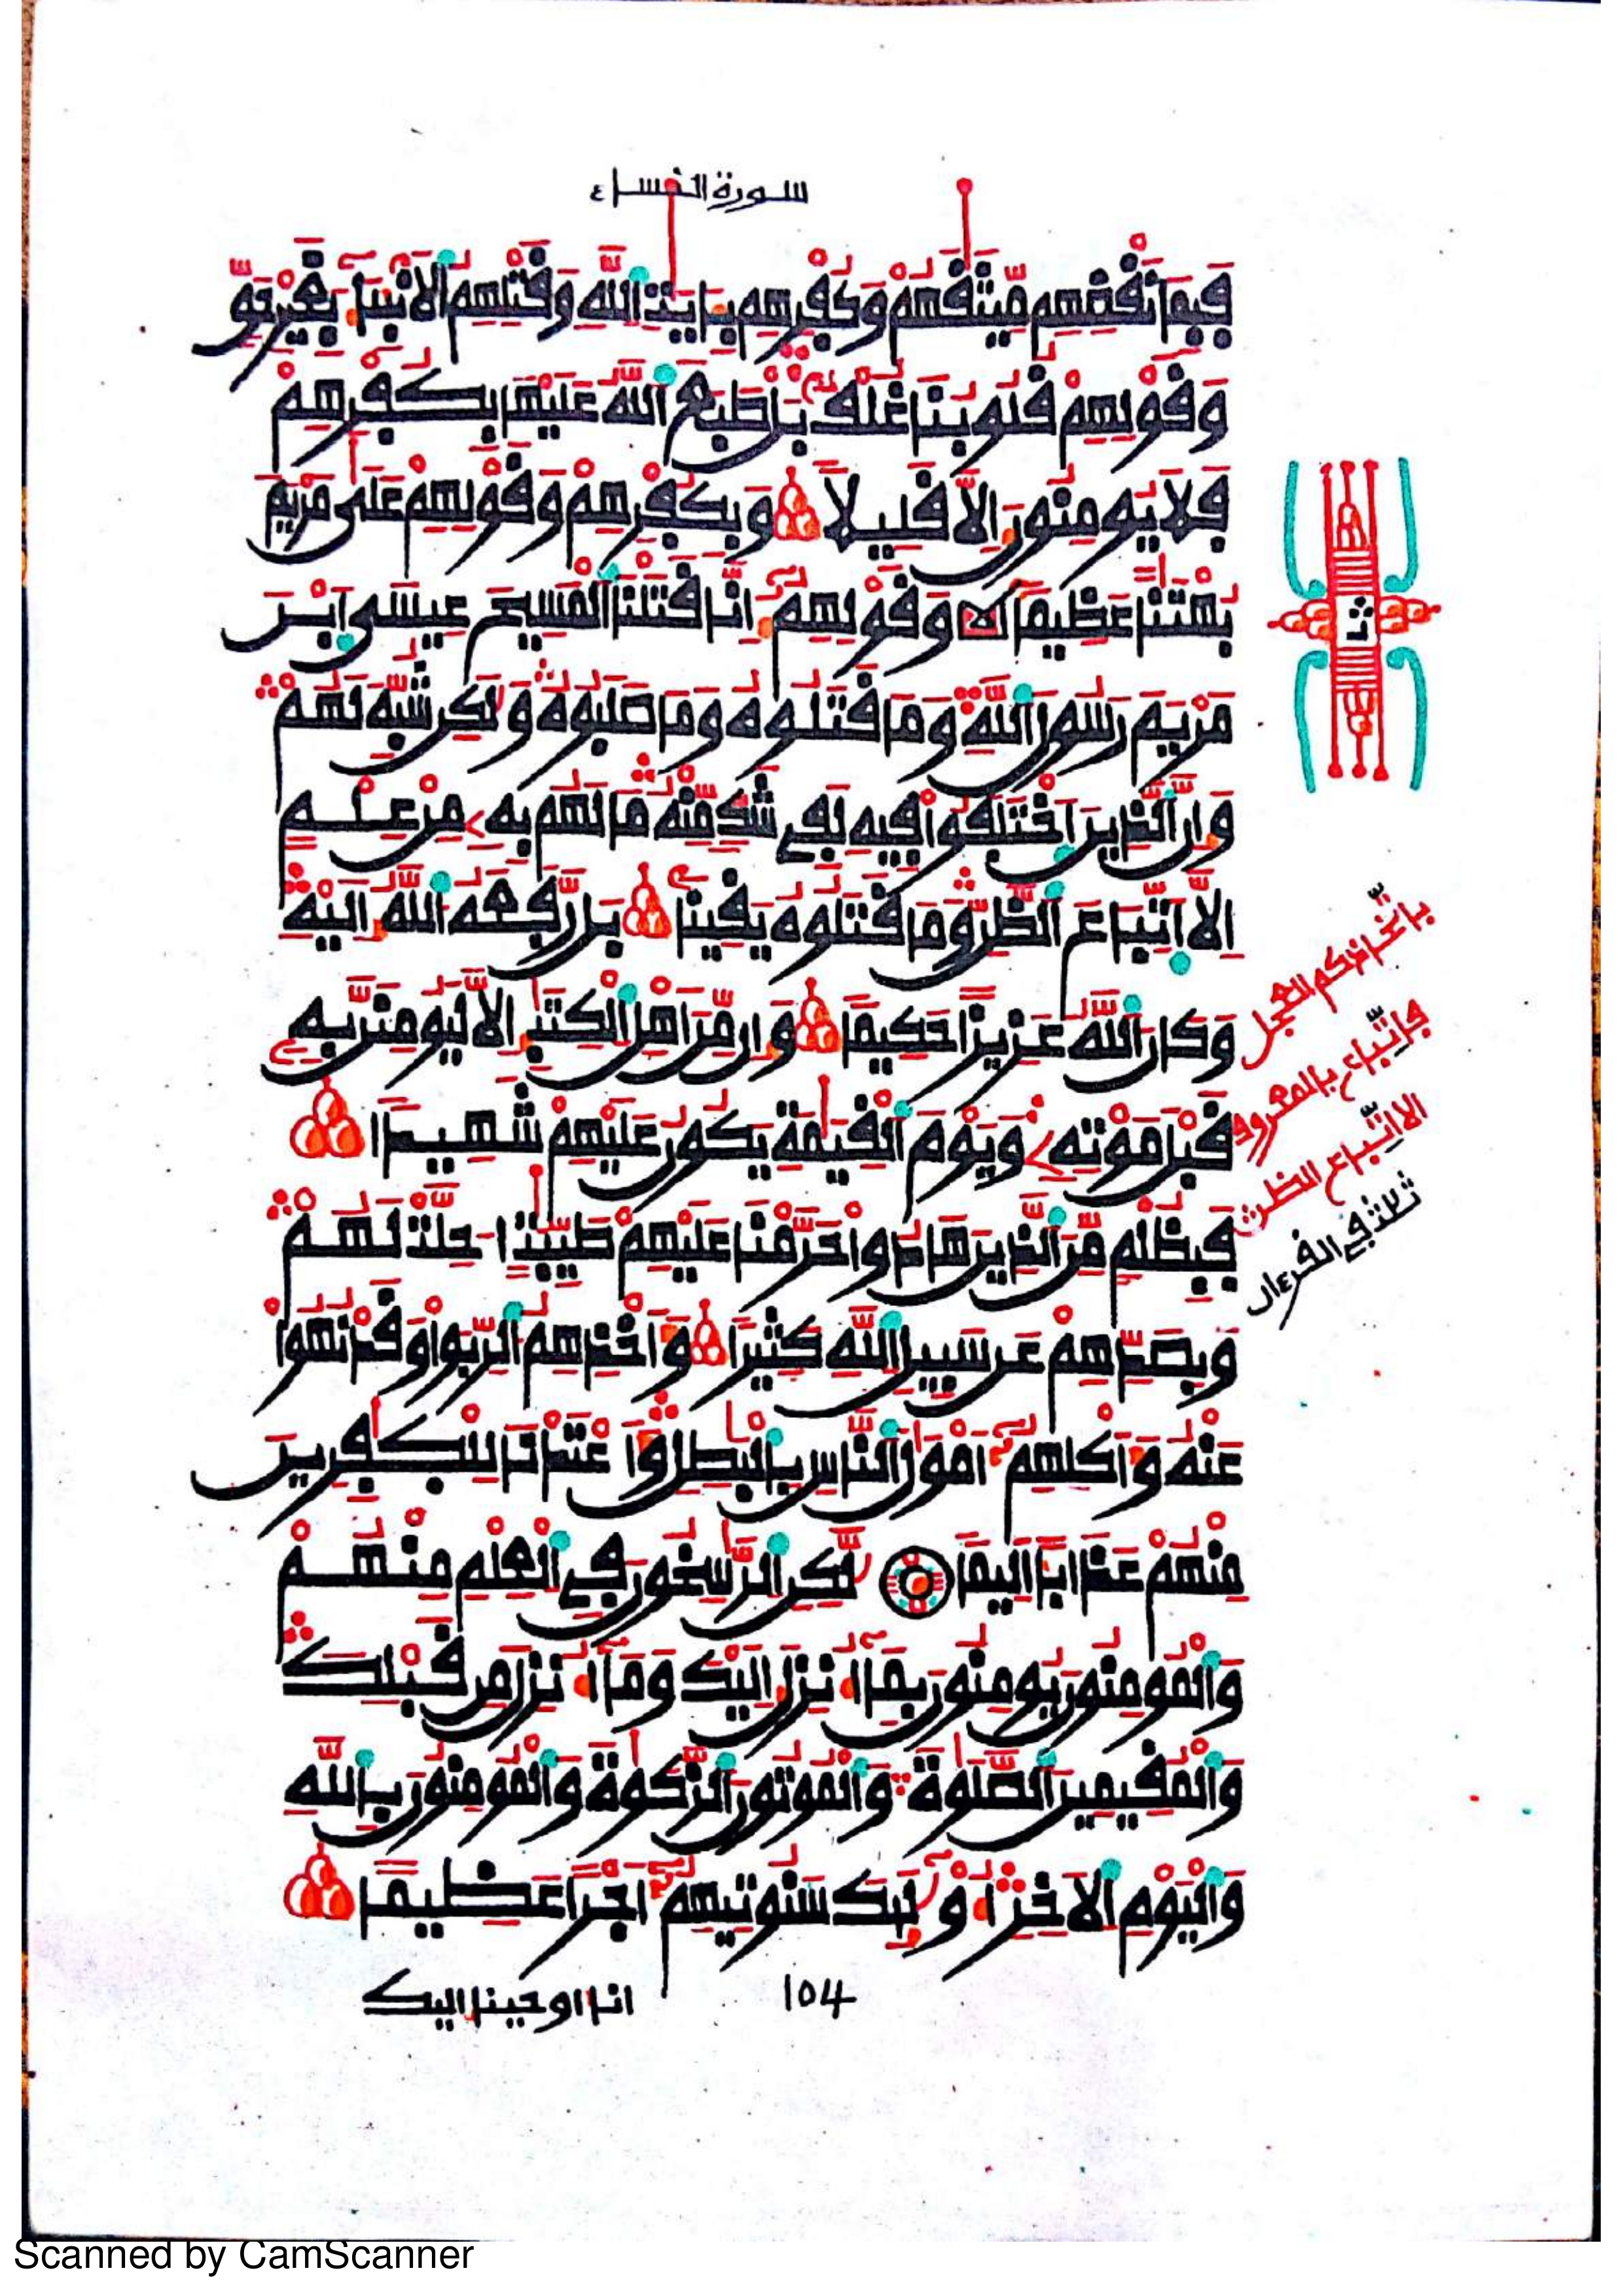 سورة النساء
فبما نقضهم ميثقهم وكفرهم بايت الله وقتلهم الانبياء بغير حق
وقولهم قلوبنا غلف بل طبع الله عليها بكفرهم
فلا يومنون الا قليلا وبكفرهم وقولهم على مريم
بهتنا عظيما وقولهم انا قتلنا المسيح عيسى ابن
مريم رسول الله وما قتلوه وما صلبوه ولكن شبه لهم
وان الذين اختلفوا فيه لفي شك منه ما لهم به من علم
الا اتباع الظن وما قتلوه يقينا بل رفعه الله اليه
وكان الله عزيزا حكيما وان من اهل الكتب الا ليومنن به
قبل موته ويوم القيمة يكون عليهم شهيدا
فبظلم من الذين هادوا حرمنا عليهم طيبت احلت لهم
وبصدهم عن سبيل الله كثيرا واخذهم الربوا وقد نهوا
عنه واكلهم امول الناس بالبطل واعتدنا للكفرين
منهم عذابا اليما لكن الرسخون في العلم منهم
والمومنون يومنون بما انزل اليك وما انزل من قبلك
والمقيمين الصلوة والموتون الزكوة والمومنون بالله
واليوم الاخر اوليك سنوتيهم اجرا عظيما
باتخاذكم العجل
فاتباع بالمعروف
الا اتباع الظن
ثلث في القرءان
104
انا اوحينا اليك
Scanned by CamScanner